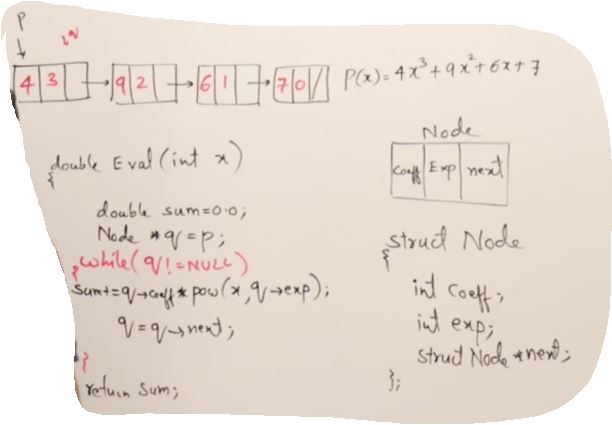 P
q
4 3
9 2
6 1
7 0 /
P(x) = 4x³ + 9x² + 6x + 7
double Eval(int x)
{
double sum=0.0;
Node *q = p;
while(q!=NULL)
{
sum+=q→coeff * pow(x, q→exp);
q = q→next;
}
return sum;
Node
Coeff Exp next
struct Node
{
int Coeff;
int exp;
struct Node *next;
};